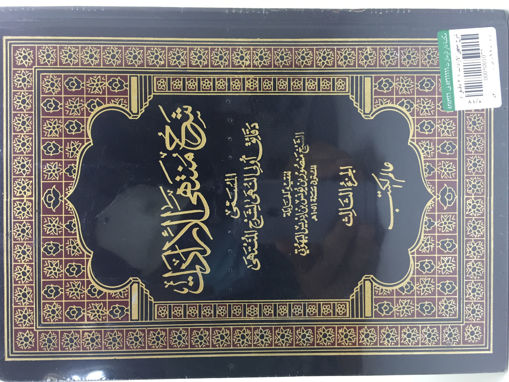 شرح منتهى الإرادات
المسمى
دقائق أولي النهى لشرح المنتهى
لفقيه الحنابلة
الشيخ منصور بن يونس بن إدريس البهوتي
المتوفى سنة ١٠٥١هـ
الجزء الثالث
عالم الكتب